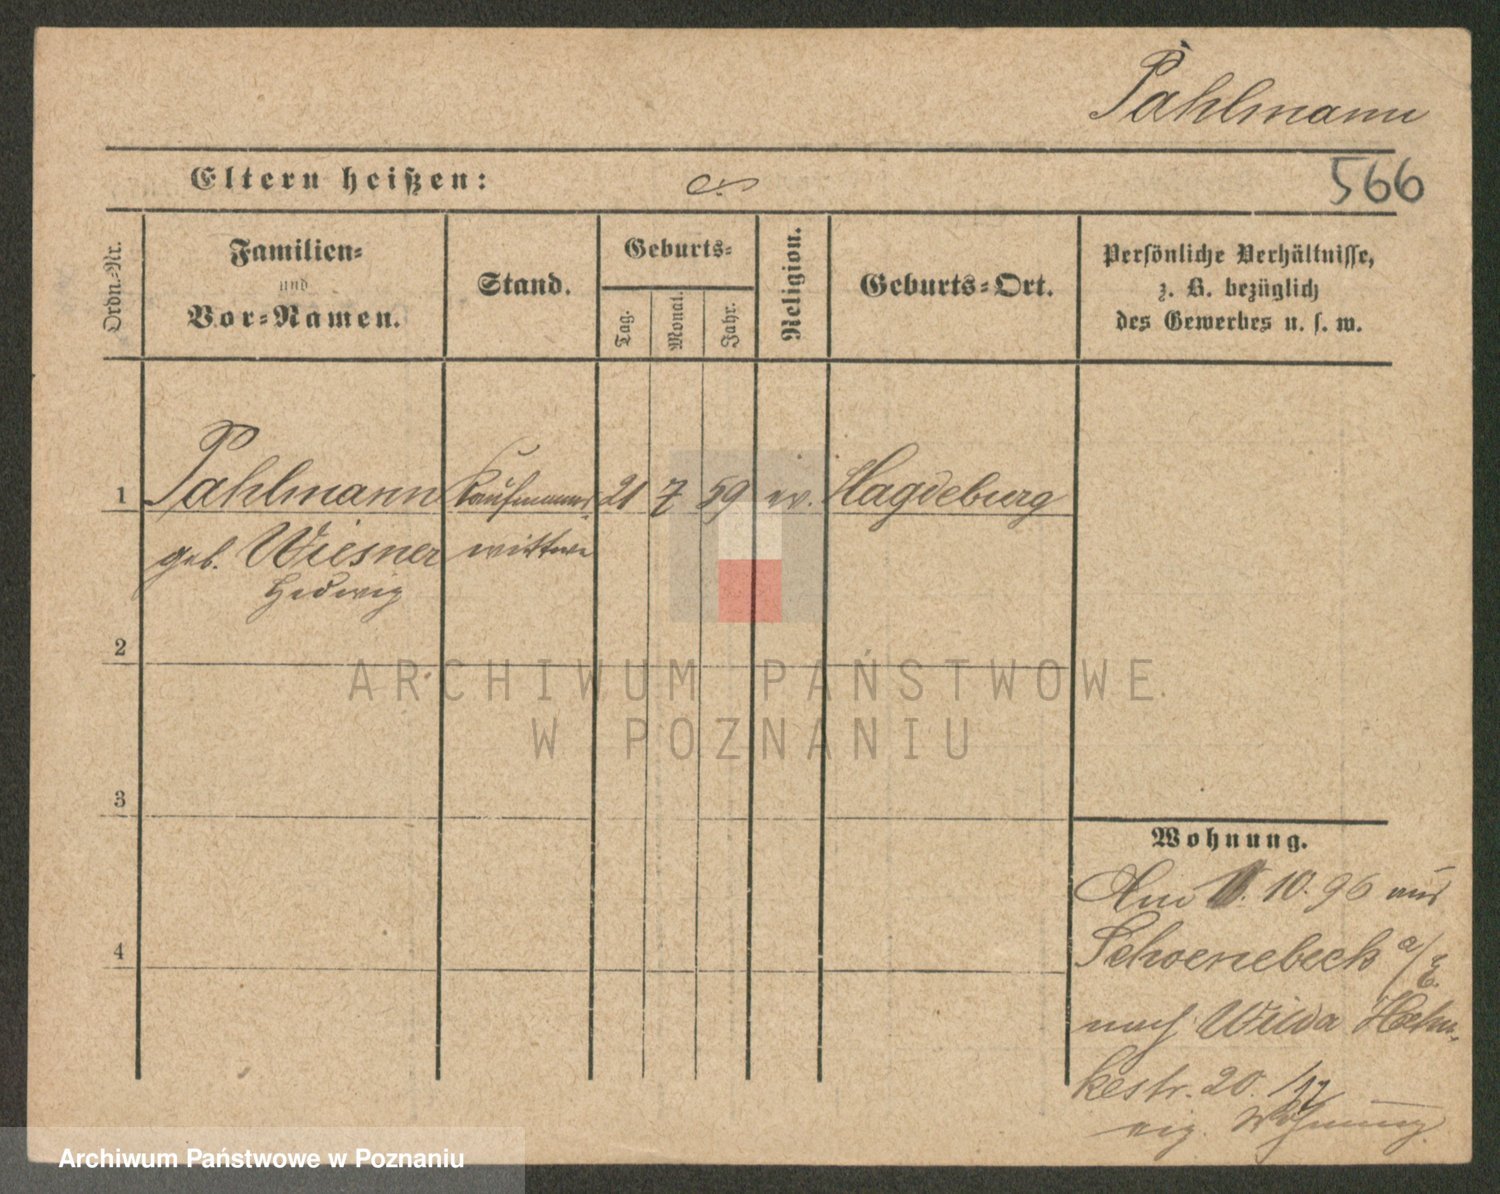 Pahlmann
Eltern heißen:
566
Ordn.-Nr.
Familien-
und
Vor-Namen.
Stand.
Geburts-
Tag.
Monat.
Jahr.
Religion.
Geburts-Ort.
Persönliche Verhältnisse,
z. B. bezüglich
des Gewerbes u. s. w.
1 Pahlmann Kaufmanns- 21 7 59 ev. Magdeburg
geb. Wiesner wittwe
Hedwig
2
3
4
Wohnung.
Am 10. 96 aus
Schoenebeck a/E.
nach Wilda
kestr. 20.
eig. Wohnung.
ARCHIWUM PAŃSTWOWE
W POZNANIU
Archiwum Państwowe w Poznaniu